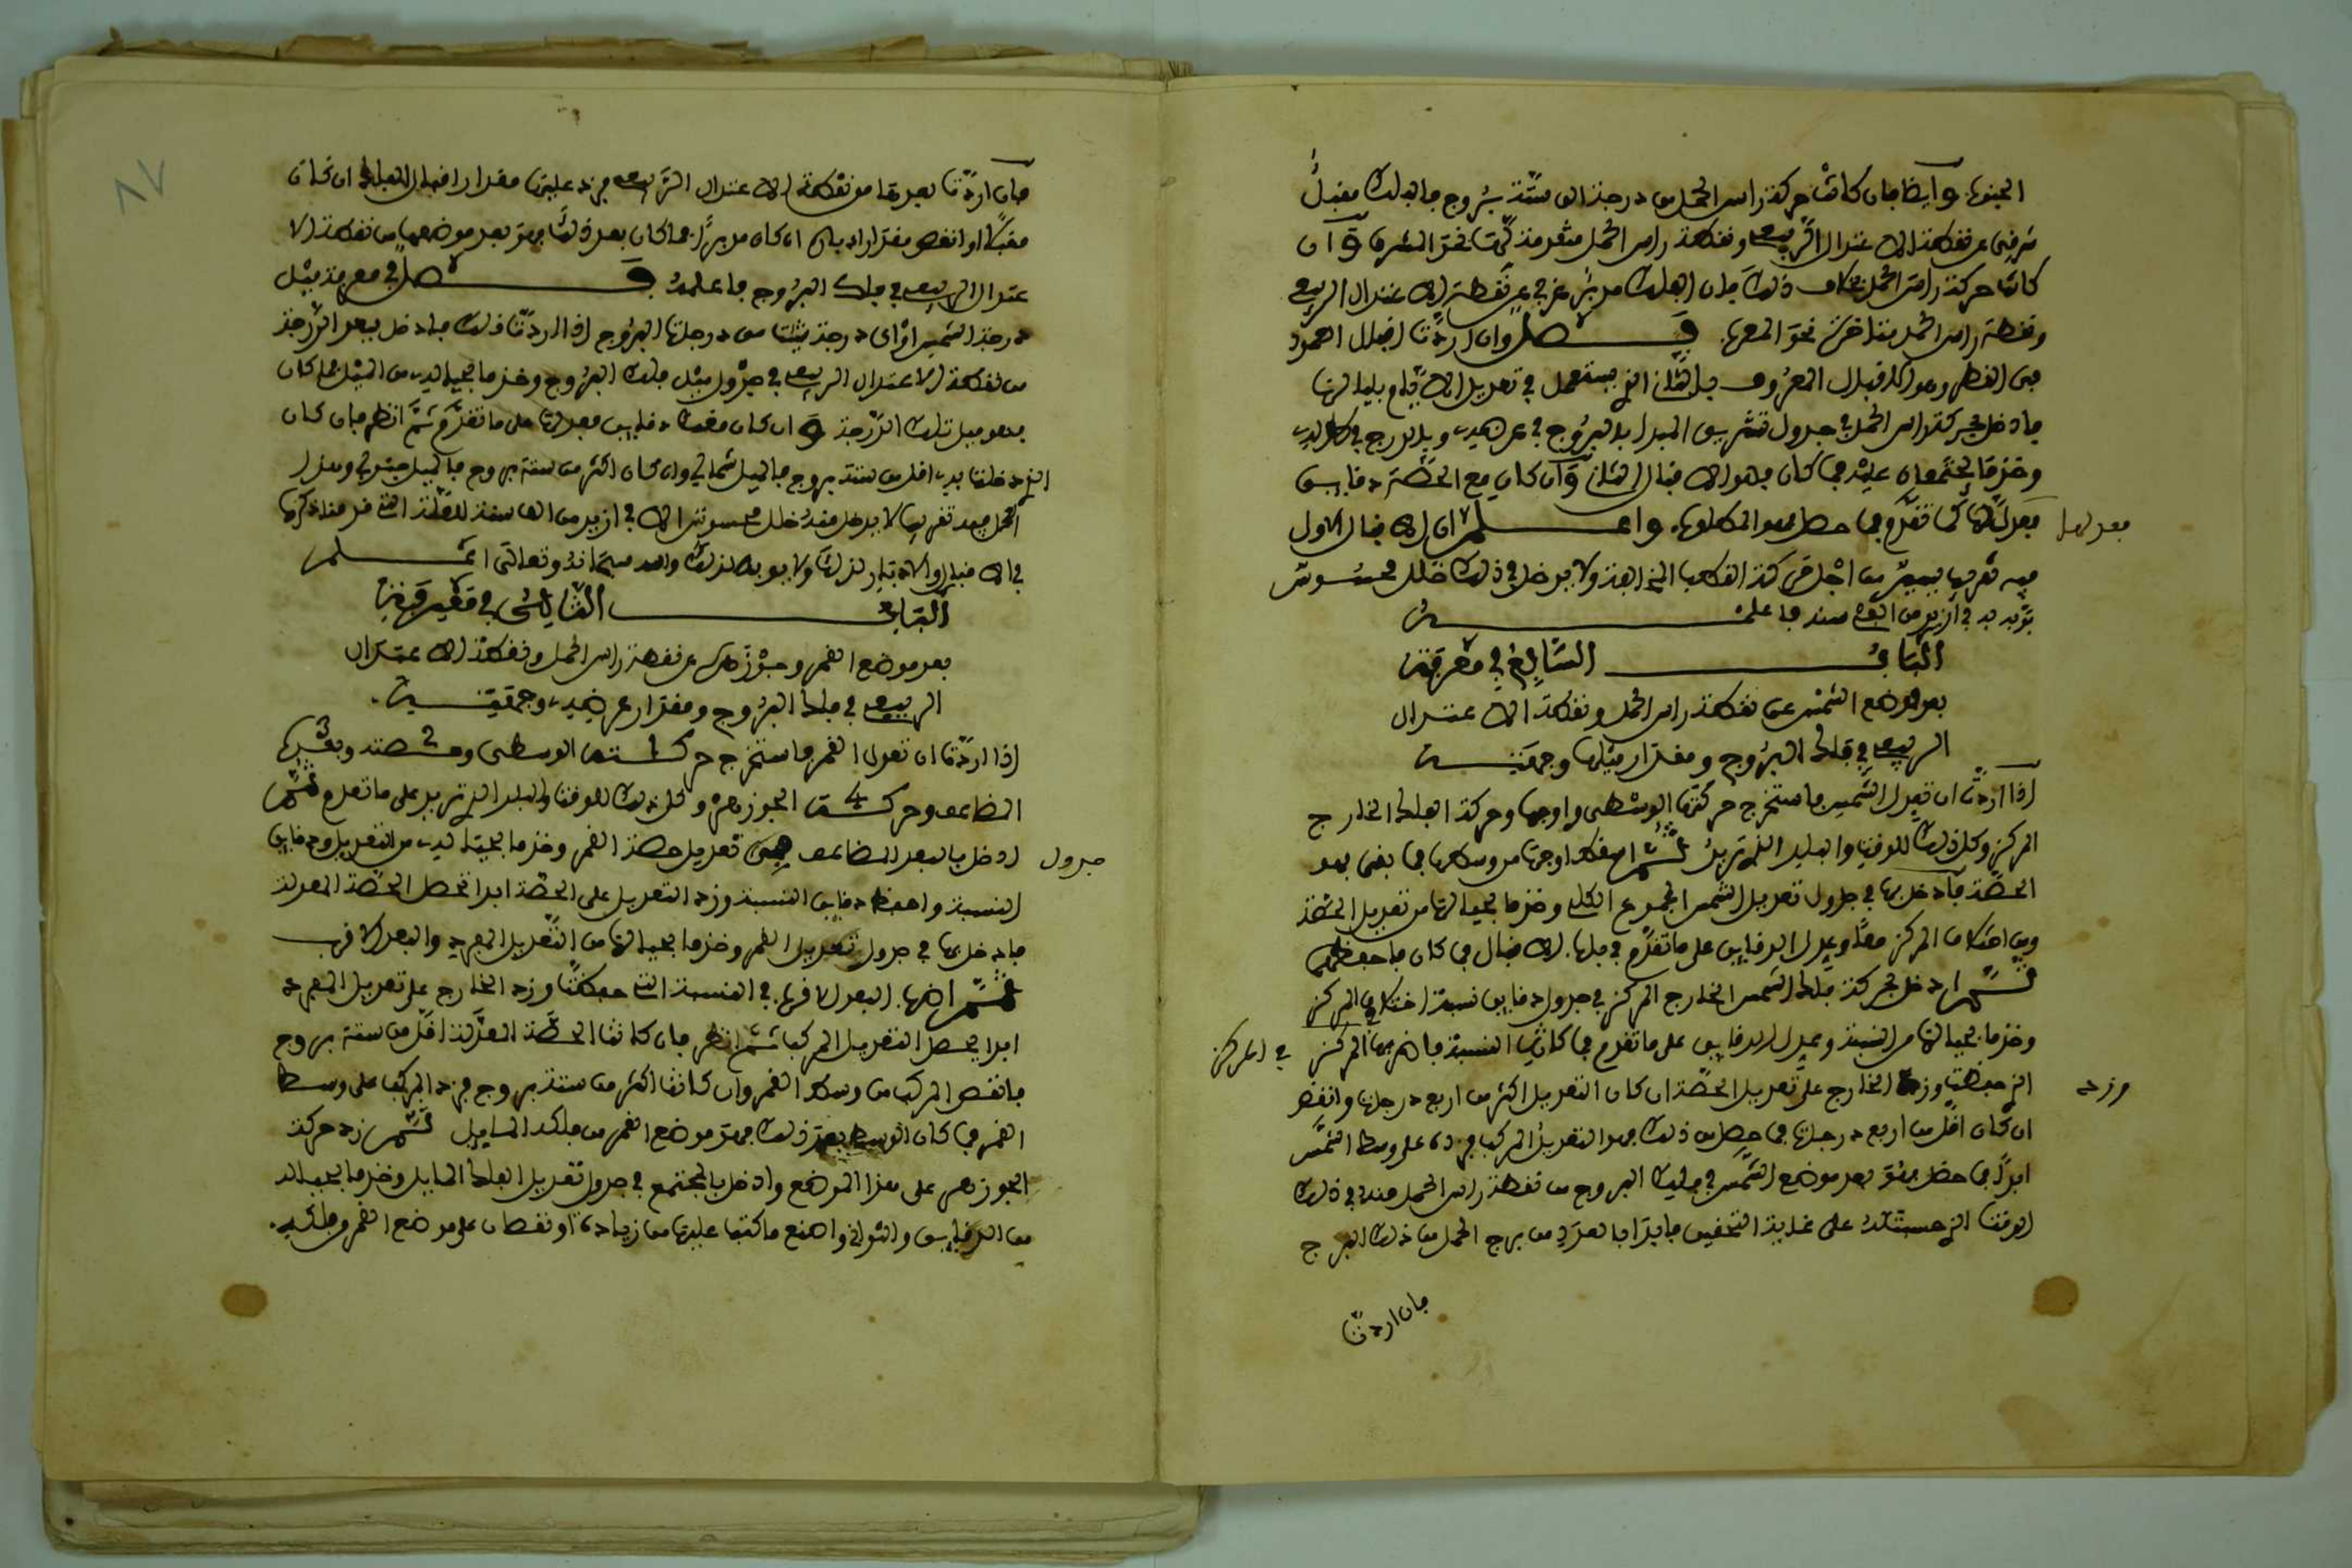 الجنوب وايضا فان كانت حركة راس الحمل من درجة الى ستة بروج فالفلك مقبل
شرقي عن نقطة الاعتدال الربيعي ونقطة راس الحمل متقدمة نحو المشرق وان
كانت حركة راس الحمل خلاف ذلك فان الفلك مدبر غربي عن نقطة الاعتدال الربيعي
ونقطة راس الحمل متاخرة نحو المغرب فصل وان اردت اقبال
وهو الاقبال المعروف بالثاني الذي يستعمل في تعديل الايام بلياليها
فادخل بحركة راس الحمل في جدول المبدا بالبروج في عرضه وبالدرج في طوله
وخذ ما يجتمعان عليه فما كان فهو الاقبال الثاني وان كان مع الحصة دقايق
فعدلها كما تقدم فما حصل فهو المطلوب واعلم ان الاقبال الاول
معدلها
فيه تقريب يسير من اجل حركة القطب ولا يدخل في ذلك خلل محسوس
يؤبه به في ازيد من الف سنة فاعلمه
الباب السابع في معرفة
بعد موضع الشمس عن نقطة راس الحمل ونقطة الاعتدال
الربيعي في فلك البروج ومقدار ميلها وجهته
اذا اردت ان تعدل الشمس فاستخرج حركتها الوسطى واوجها وحركة الفلك الخارج
المركز وكل ذلك للوقت والبلد الذي تريد ثم اسقط اوجها من وسطها فما بقي فهو
الحصة فادخل بها في جدول تعديل الشمس المجموع الكلي وخذ ما بحيالها من تعديل الحصة
ومن اختلاف المركز معا وعدل الدقايق على ما تقدم في باب الاقبال فما كان فاحفظه
ثم ادخل بحركة فلك الشمس الخارج المركز في جدول دقايق نسبة اختلاف المركز
وخذ ما بحيالها من النسبة وعدل الدقايق على ما تقدم فما كانت النسبة فاضربها في المركز
في المركز
الذي حفظت وزد الخارج على تعديل الحصة ان كان التعديل اكثر من اربع درجات وانقص
وزد
ان كان اقل من اربع درجات فما حصل من ذلك فهو التعديل المركب فزده على وسط الشمس
ابدا فما حصل فهو بعد موضع الشمس في فلك البروج من نقطة راس الحمل عنده في ذلك
الوقت الذي حسبته له على غاية التحقيق فابدا بالعدد من برج الحمل من ذلك البرج
فان اردت
فان اردت بعدها من نقطة الاعتدال الربيعي فزد عليها مقدار اقبال الفلك ان كان
مقبلا او انقص مقدار ادباره ان كان مدبرا فما كان بعد ذلك فهو بعد موضعها من نقطة الا
عتدال الربيعي في فلك البروج فاعلمه فصل في معرفة ميل
درجة الشمس او اي درجة شئت من درجات البروج اذا اردت ذلك فادخل ببعد الدرجة
من نقطة الاعتدال الربيعي في جدول ميل فلك البروج وخذ ما بحياله من الميل فما كان
فهو ميل تلك الدرجة وان كان معك دقايق فعدلها على ما تقدم ثم انظر فان كان
الذي دخلت به اقل من ستة بروج فالميل شمالي وان كان اكثر من ستة بروج فالميل جنوبي وهذا
العمل فيه تقريب لا يدخل منه خلل محسوس الا في ازيد من الف سنة للعلة التي قد ذكرها
في الاقبال والادبار لذلك ولا يوبه لذلك والله سبحانه وتعالى اعلم
الباب الثامن في معرفة
بعد موضع القمر وجوزهره عن نقطة راس الحمل ونقطة الاعتدال
الربيعي في فلك البروج ومقدار عرضه وجهته
اذا اردت ان تعدل القمر فاستخرج حركته الوسطى وحصته وبعده
المضاعف وحركة الجوزهر وكل ذلك للوقت والبلد الذي تريد على ما تقدم ثم
ادخل بالبعد المضاعف في تعديل حصة القمر وخذ ما بحياله من التعديل ودقايق
جدول
النسبة واحفظ دقايق النسبة وزد التعديل على الحصة ابدا تحصل الحصة المعدلة
فادخل بها في جدول تعديل القمر وخذ ما بحيالها من التعديل المفرد والبعد الاقرب
ثم اضرب البعد الاقرب في النسبة التي حفظت وزد الخارج على تعديل المفرد
ابدا يحصل التعديل المركب ثم انظر فان كانت الحصة المعدلة اقل من ستة بروج
فانقص المركب من وسط القمر وان كانت اكثر من ستة بروج فزد المركب على وسط
القمر فما كان الوسط بعد ذلك فهو موضع القمر من فلكه المايل ثم زد حركة
الجوزهر على هذا الموضع وادخل بالمجتمع في جدول تعديل الفلك المايل وخذ ما بحياله
من الدقايق والثواني واصنع ما كتب عليها من زيادة او نقصان على موضع القمر في فلكه